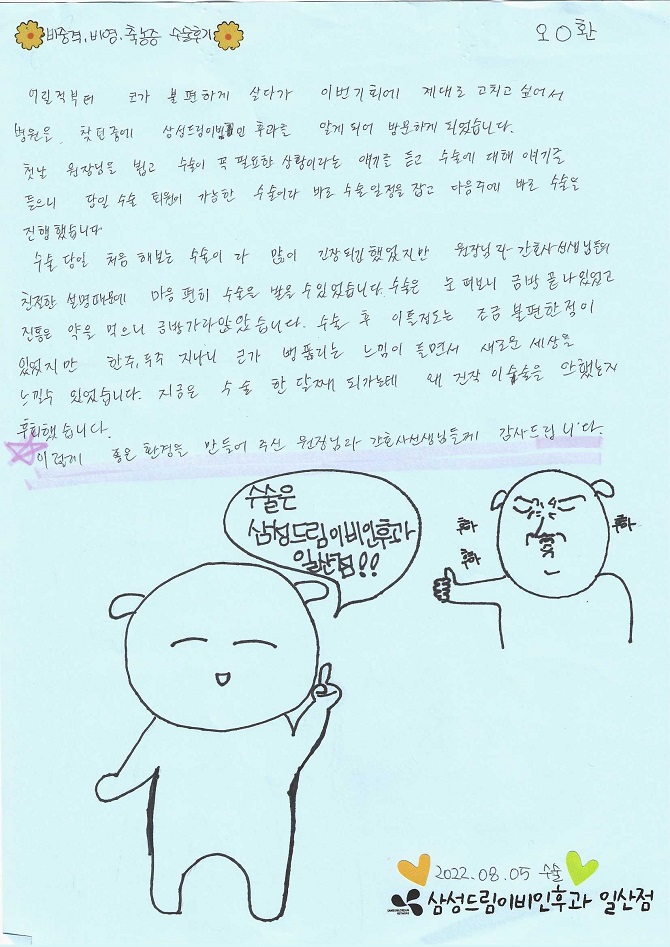 비중격, 비염, 축농증 수술후기
오O환
어릴적부터 코가 불편하게 살다가 이번기회에 제대로 고치고 싶어서
병원을 찾던중에 삼성드림이비인후과를 알게 되어 방문하게 되었습니다.
첫날 원장님을 뵙고 수술이 꼭 필요한 상황이라는 얘기를 듣고 수술에 대해 얘기를
들으니 당일 수술 퇴원이 가능한 수술이라 바로 수술일정을 잡고 다음주에 바로 수술을
진행했습니다
수술 당일 처음 해보는 수술이 라 많이 긴장되긴했었지만 원장님과 간호사선생님들의
친절한 설명때문에 마음 편히 수술을 받을 수 있었습니다. 수술은 눈 떠보니 금방 끝나있었고
진통은 약을 먹으니 금방가라앉았습니다. 수술 후 이틀정도는 조금 불편한점이
있었지만 한주, 두주 지나니 코가 뻥뚫리는 느낌이 들면서 새로운 세상을
느낄수 있었습니다. 지금은 수술 한 달째 되가는데 왜 진작 이 수술을 안했는지
후회했습니다.
이렇게 좋은 환경을 만들어 주신 원장님과 간호사선생님들께 감사드립니다.
수술은
삼성드림이비인후과
일산점!!
후하
후하
후하
2022.08.05 수술
삼성드림이비인후과 일산점